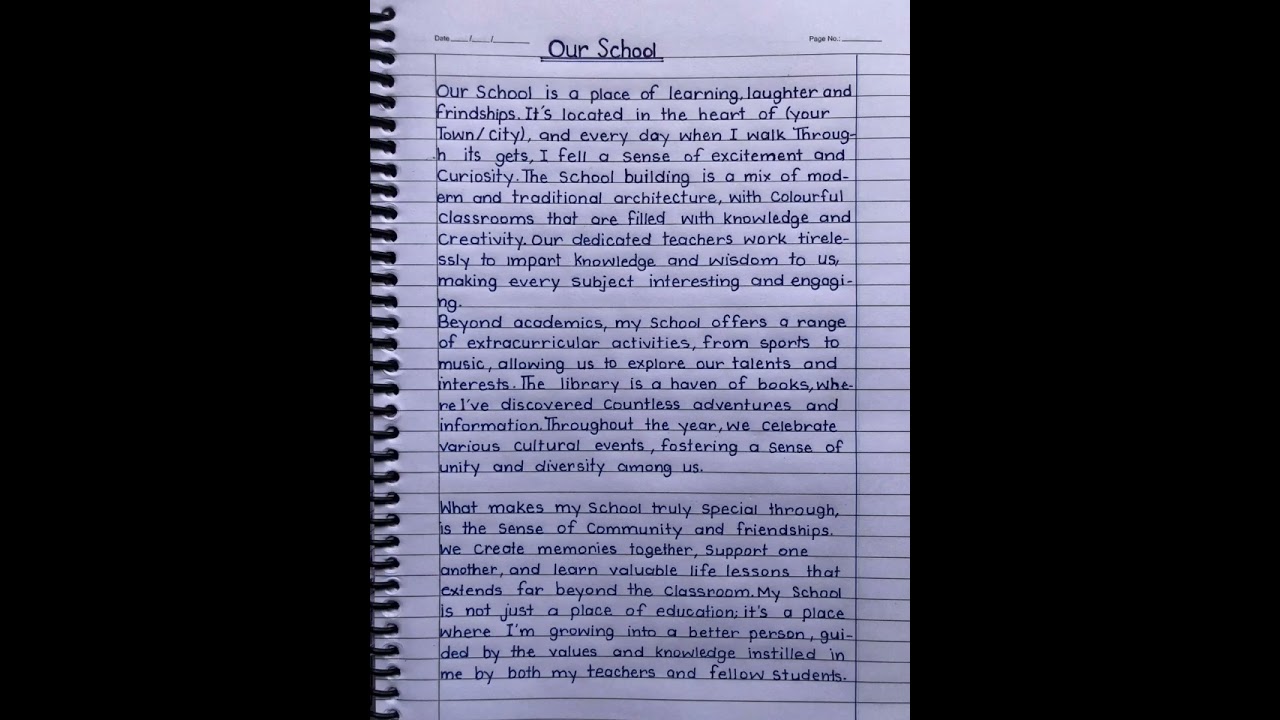 Date ___/___/______ Page No.: ________
Our School
Our School is a place of learning, laughter and
frindships. It's located in the heart of (your
Town/city), and every day when I walk Throug-
h its gets, I fell a sense of excitement and
Curiosity. The School building is a mix of mod-
ern and traditional architecture, with Colourful
Classrooms that are filled with knowledge and
Creativity. Our dedicated teachers work tirele-
ssly to impart knowledge and wisdom to us,
making every subject interesting and engagi-
ng.
Beyond academics, my school offers a range
of extracurricular activities, from sports to
music, allowing us to explore our talents and
interests. The library is a haven of books, whe-
re I've discovered Countless adventures and
information. Throughout the year, we celebrate
various cultural events, fostering a sense of
unity and diversity among us.
What makes my School truly special through,
is the Sense of Community and friendships.
We Create memories together, Support one
another, and learn valuable life lessons that
extends far beyond the Classroom. My School
is not just a place of education; it's a place
where I'm growing into a better person, gui-
ded by the values and knowledge instilled in
me by both my teachers and fellow Students.